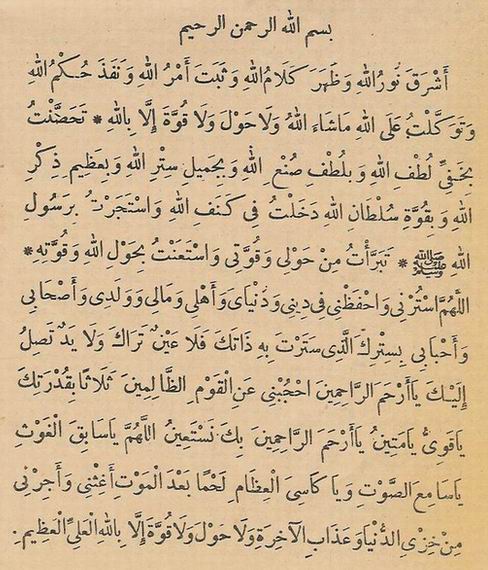 بسم الله الرحمن الرحيم
أَشْرَقَ نُورُ اللهِ وَظَهَرَ كَلَامُ اللهِ وَثَبَتَ أَمْرُ اللهِ وَنَفَذَ حُكْمُ اللهِ
وَتَوَكَّلْتُ عَلَى اللهِ مَاشَاءَ اللهُ وَلَا حَوْلَ وَلَا قُوَّةَ إِلَّا بِاللهِ * تَحَصَّنْتُ
بِخَفِيِّ لُطْفِ اللهِ وَبِلُطْفِ صُنْعِ اللهِ وَبِجَمِيلِ سِتْرِ اللهِ وَبِعَظِيمِ ذِكْرِ
اللهِ وَبِقُوَّةِ سُلْطَانِ اللهِ دَخَلْتُ فِى كَنَفِ اللهِ وَاسْتَجَرْتُ بِرَسُولِ
اللهِ ﷺ * تَبَرَّأْتُ مِنْ حَوْلِى وَقُوَّتِى وَاسْتَعَنْتُ بِحَوْلِ اللهِ وَقُوَّتِهِ *
اللَّهُمَّ اسْتُرْنِى وَاحْفَظْنِى فِى دِينِى وَدُنْيَاىَ وَأَهْلِى وَمَالِى وَوَلَدِى وَأَصْحَابِى
وَأَحْبَابِى بِسِتْرِكَ الَّذِى سَتَرْتَ بِهِ ذَاتَكَ فَلَا عَيْنٌ تَرَاكَ وَلَا يَدٌ تَصِلُ
إِلَيْكَ يَاأَرْحَمَ الرَّاحِمِينَ احْجُبْنِى عَنِ الْقَوْمِ الظَّالِمِينَ ثَلَاثًا بِقُدْرَتِكَ
يَاقَوِىُّ يَامَتِينُ يَاأَرْحَمَ الرَّاحِمِينَ بِكَ نَسْتَعِينُ اللَّهُمَّ يَاسَابِقَ الْغَوْثِ
يَاسَامِعَ الصَّوْتِ وَيَا كَاسِىَ الْعِظَامِ لَحْمًا بَعْدَ الْمَوْتِ أَغِثْنِى وَأَجِرْنِى
مِنْ خِزْىِ الدُّنْيَا وَعَذَابِ الْآخِرَةِ وَلَا حَوْلَ وَلَا قُوَّةَ إِلَّا بِاللهِ الْعَلِىِّ الْعَظِيمِ.